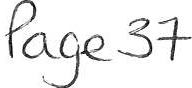 Page 37